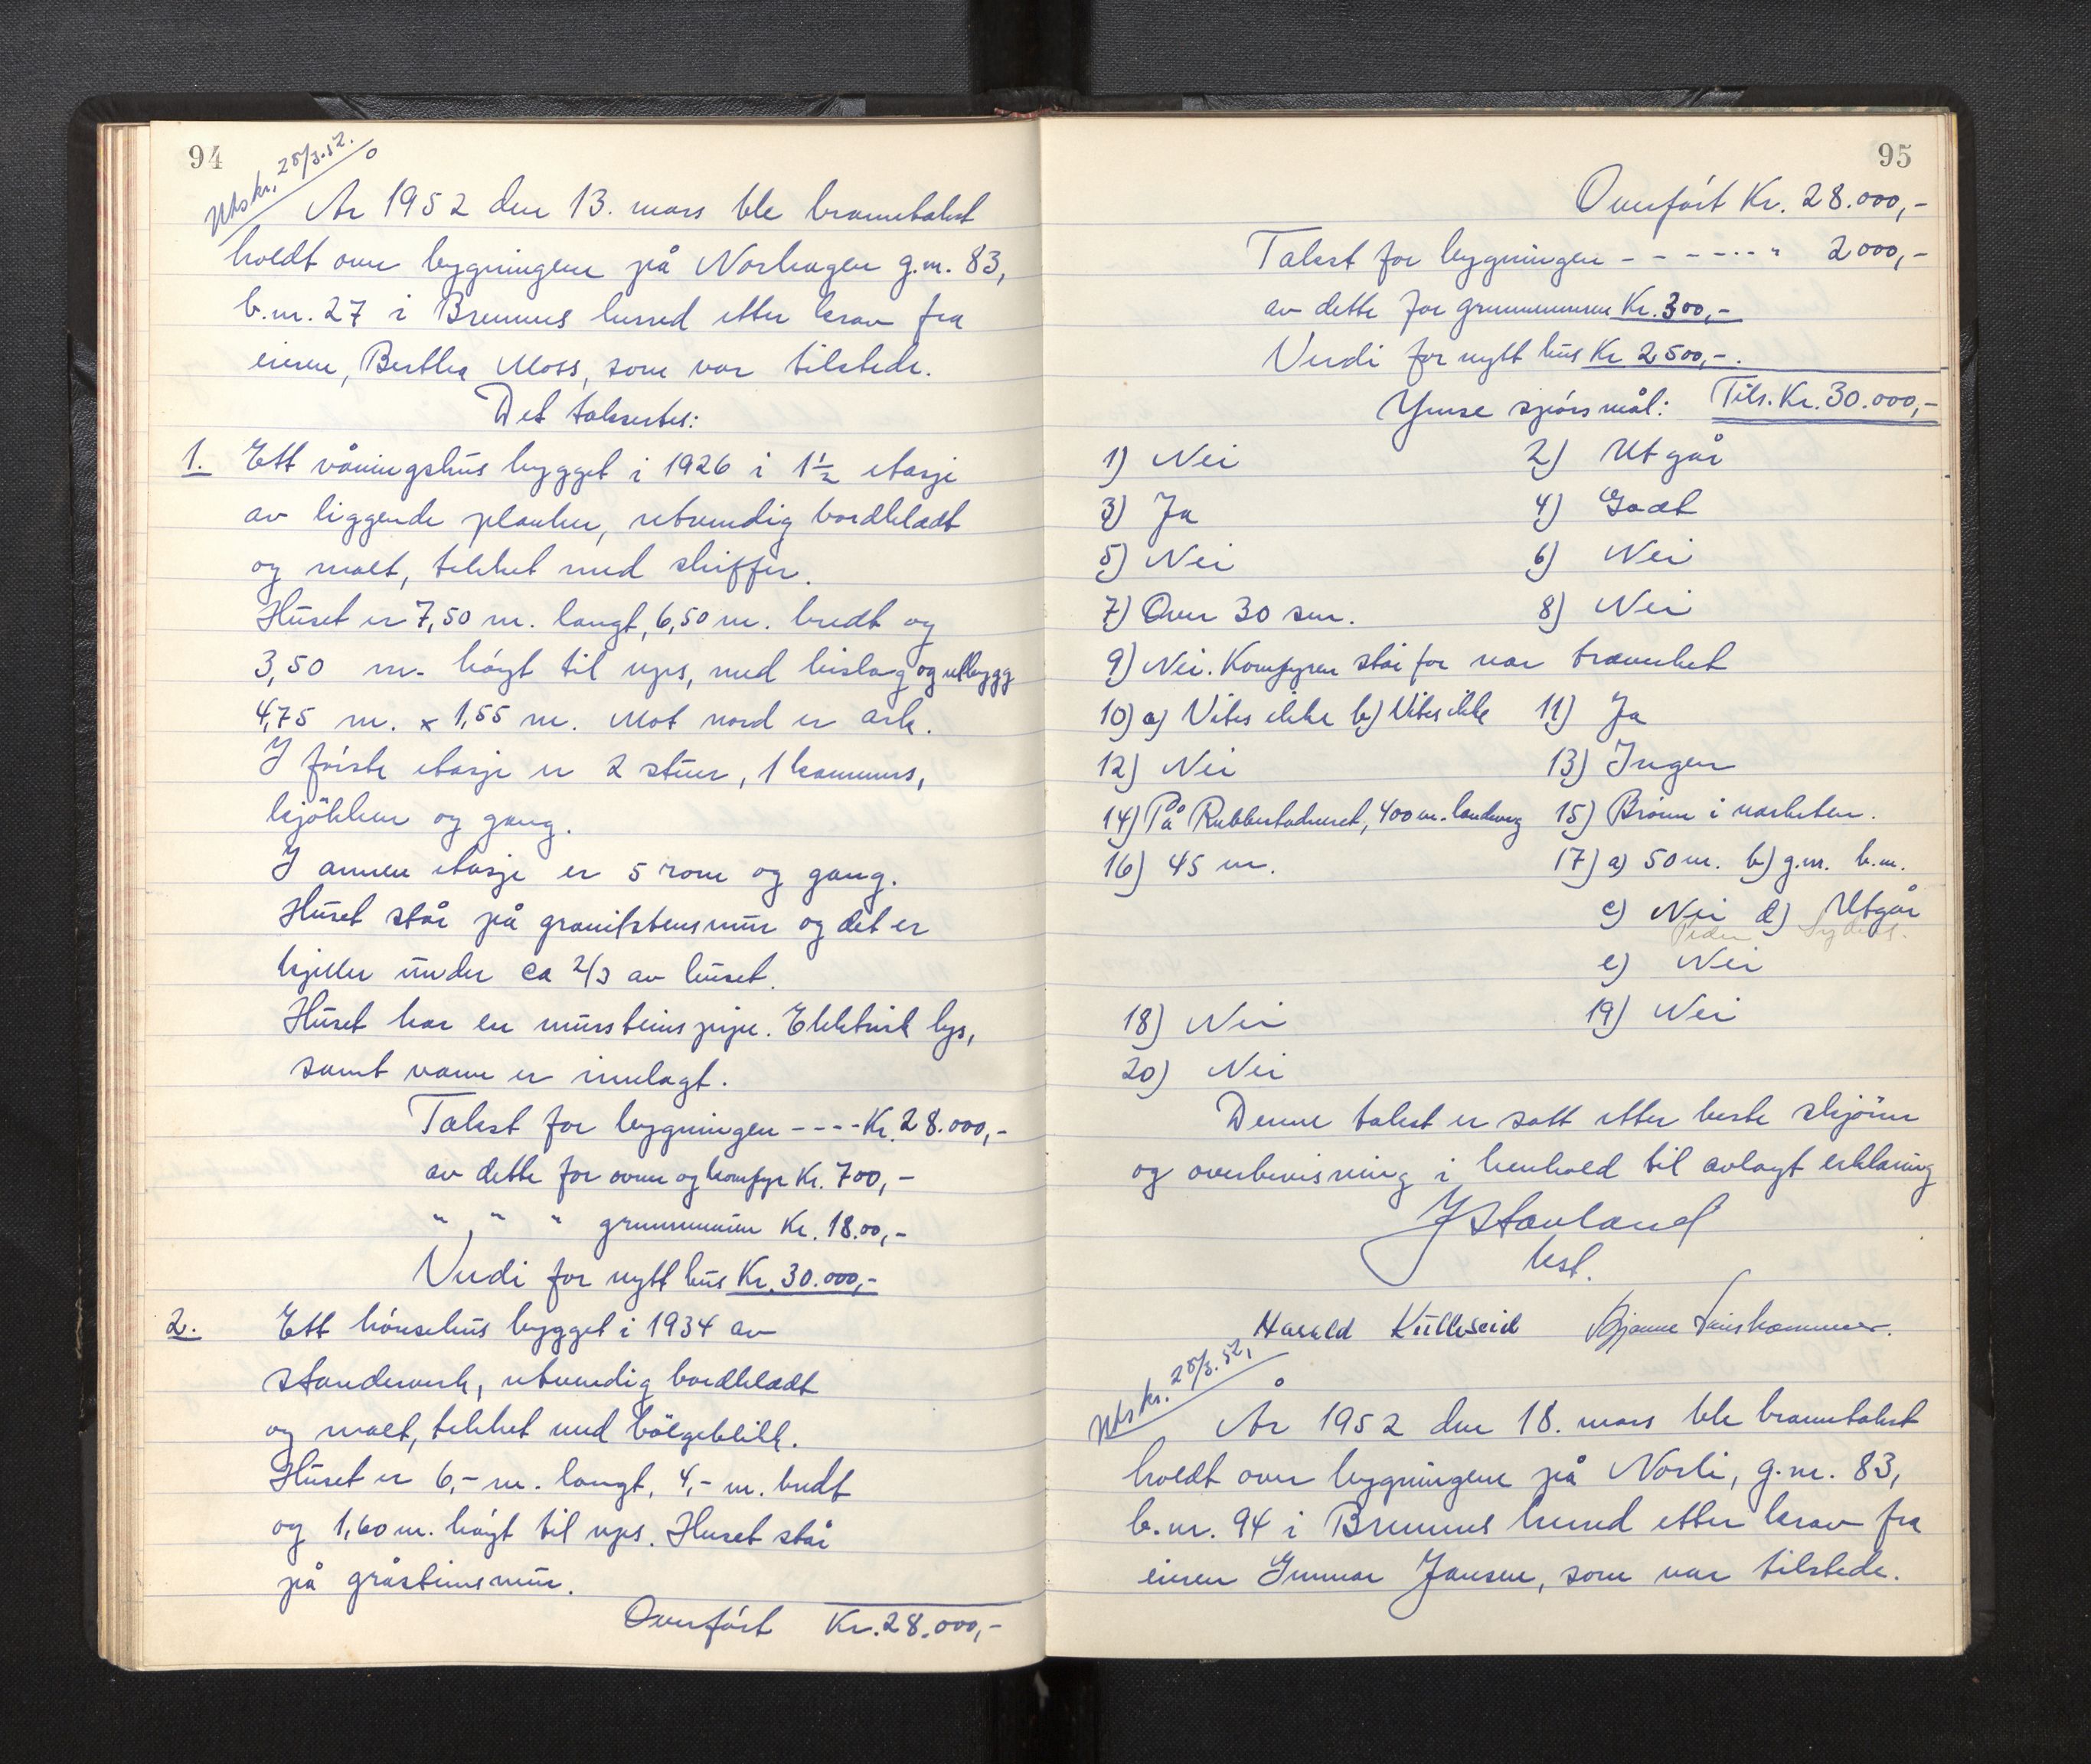 94
Utskr. 25/3.52.
År 1952 den 13. mars ble branntakst
holdt over bygningene på Norhagen g.nr. 83,
b.nr. 27 i Bremnes herred etter krav fra
eieren, Berthe Moss, som var tilstede.
Det taksertes:
1. Ett våningshus bygget i 1926 i 1½ etasje
av liggende planker, utvendig bordkledt
og malt, tekket med skiffer.
Huset er 7,50 m. langt, 6,50 m. bredt og
3,50 m. høgt til ups, med bislag og utbygg
4,75 m. x 1,55 m. Mot nord er ark.
I første etasje er 2 stuer, 1 kammers,
kjøkken og gang.
I annen etasje er 5 rom og gang.
Huset står på granitstensmur og det er
kjeller under ca 2/3 av huset.
Huset har en mursteinspipe. Elektrisk lys,
samt vann er innlagt.
Takst for bygningen ---- Kr. 28.000,-
av dette for ovner og komfyr Kr. 700,-
" " " grunnmuren Kr. 18.00,-
Verdi for nytt hus Kr. 30.000,-
2. Ett hønsehus bygget i 1934 av
standerverk, utvendig bordkledt
og malt, tekket med bølgeblikk.
Huset er 6,- m. langt, 4,- m. bredt
og 1,60 m. høgt til ups. Huset står
på gråsteinsmur.
Overført Kr. 28.000,-
95
Overført Kr. 28.000,-
Takst for bygningen - - - - - - - " 2000,-
av dette for grunnmuren Kr. 300,-
Verdi for nytt hus Kr 2500,-.
Ymse spørsmål: Tils. Kr. 30.000,-
1) Nei 2) Utgår
3) Ja 4) Godt
5) Nei 6) Nei
7) Over 30 sm. 8) Nei
9) Nei. Komfyren står for nær treverket
10) a) Vites ikke b) Vites ikke 11) Ja
12) Nei 13) Ingen
14) På Rubbestadneset, 400 m. landeveg 15) Brønn i nærheten.
16) 45 m. 17) a) 50 m. b) g.nr. b.nr.
c) Nei d) Utgår
e) Nei
18) Nei 19) Nei
20) Nei
Denne takst er satt etter beste skjønn
og overbevisning i henhold til avlagt erklæring
J Stavland
lest.
Harald Kulleseid Bjarne
Utskr. 25/3.52,
År 1952 den 18. mars ble branntakst
holdt over bygningene på Norli, g.nr. 83,
b.nr. 94 i Bremnes herred etter krav fra
eieren Gunnar Jansen, som var tilstede.